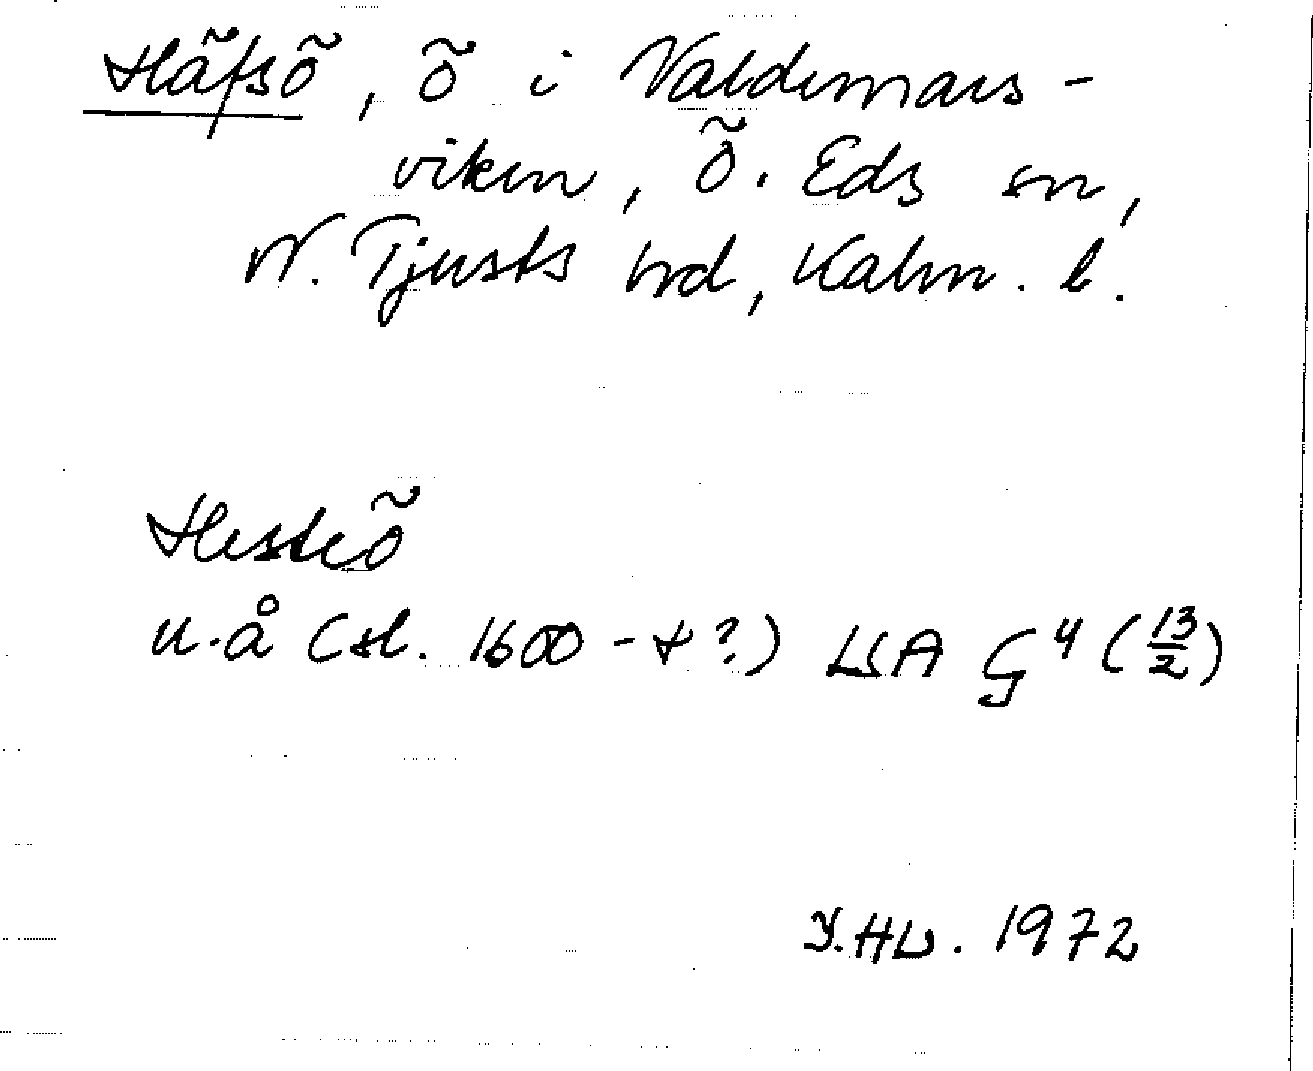 Häfsö, ö i Valdemars-
viken, Ö. Eds sn,
N. Tjusts hrd, Kalm. l.
Hesteö
u.å (sl. 1600-t?) LSA G4 (13/2)
1972